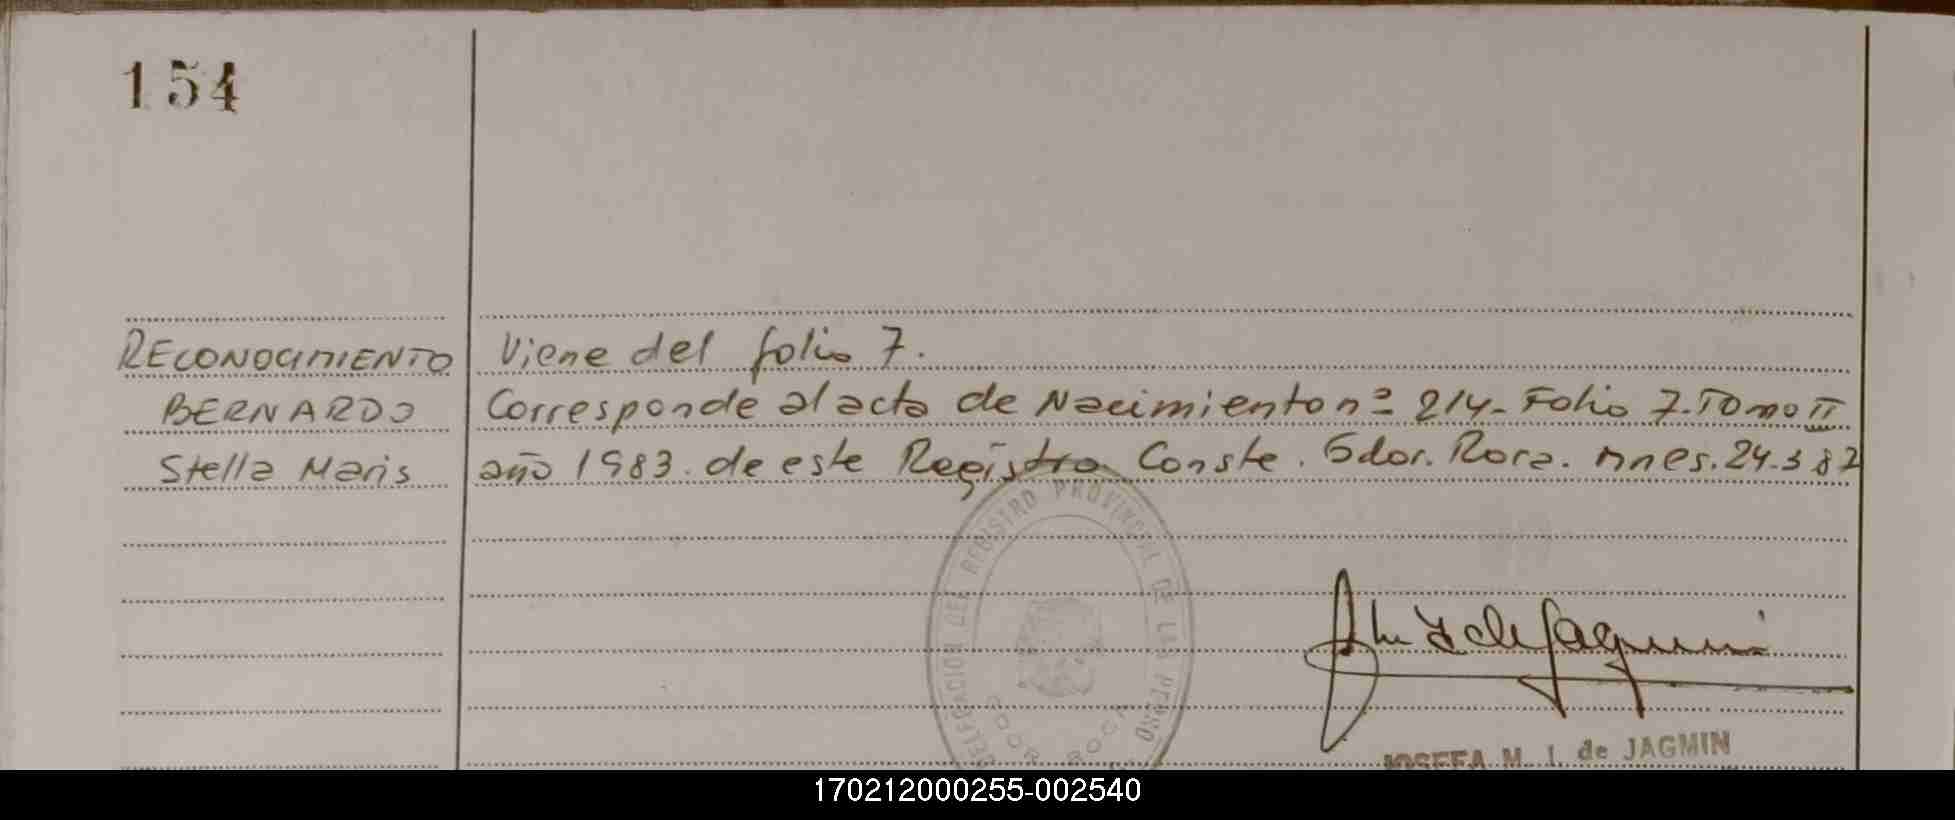 154
RECONOCIMIENTO
BERNARDO
Stella Maris
Viene del folio 7.
Corresponde al acta de Nacimiento nº 214- Folio 7. Tomo II
año 1983. de este Registro Conste. Gdor. Roca. mnes. 24-3 87
DELEGACION DEL REGISTRO PROVINCIAL DE LAS PERSO
GDOR ROCA
JOSEFA M. I. de JAGMIN
170212000255-002540